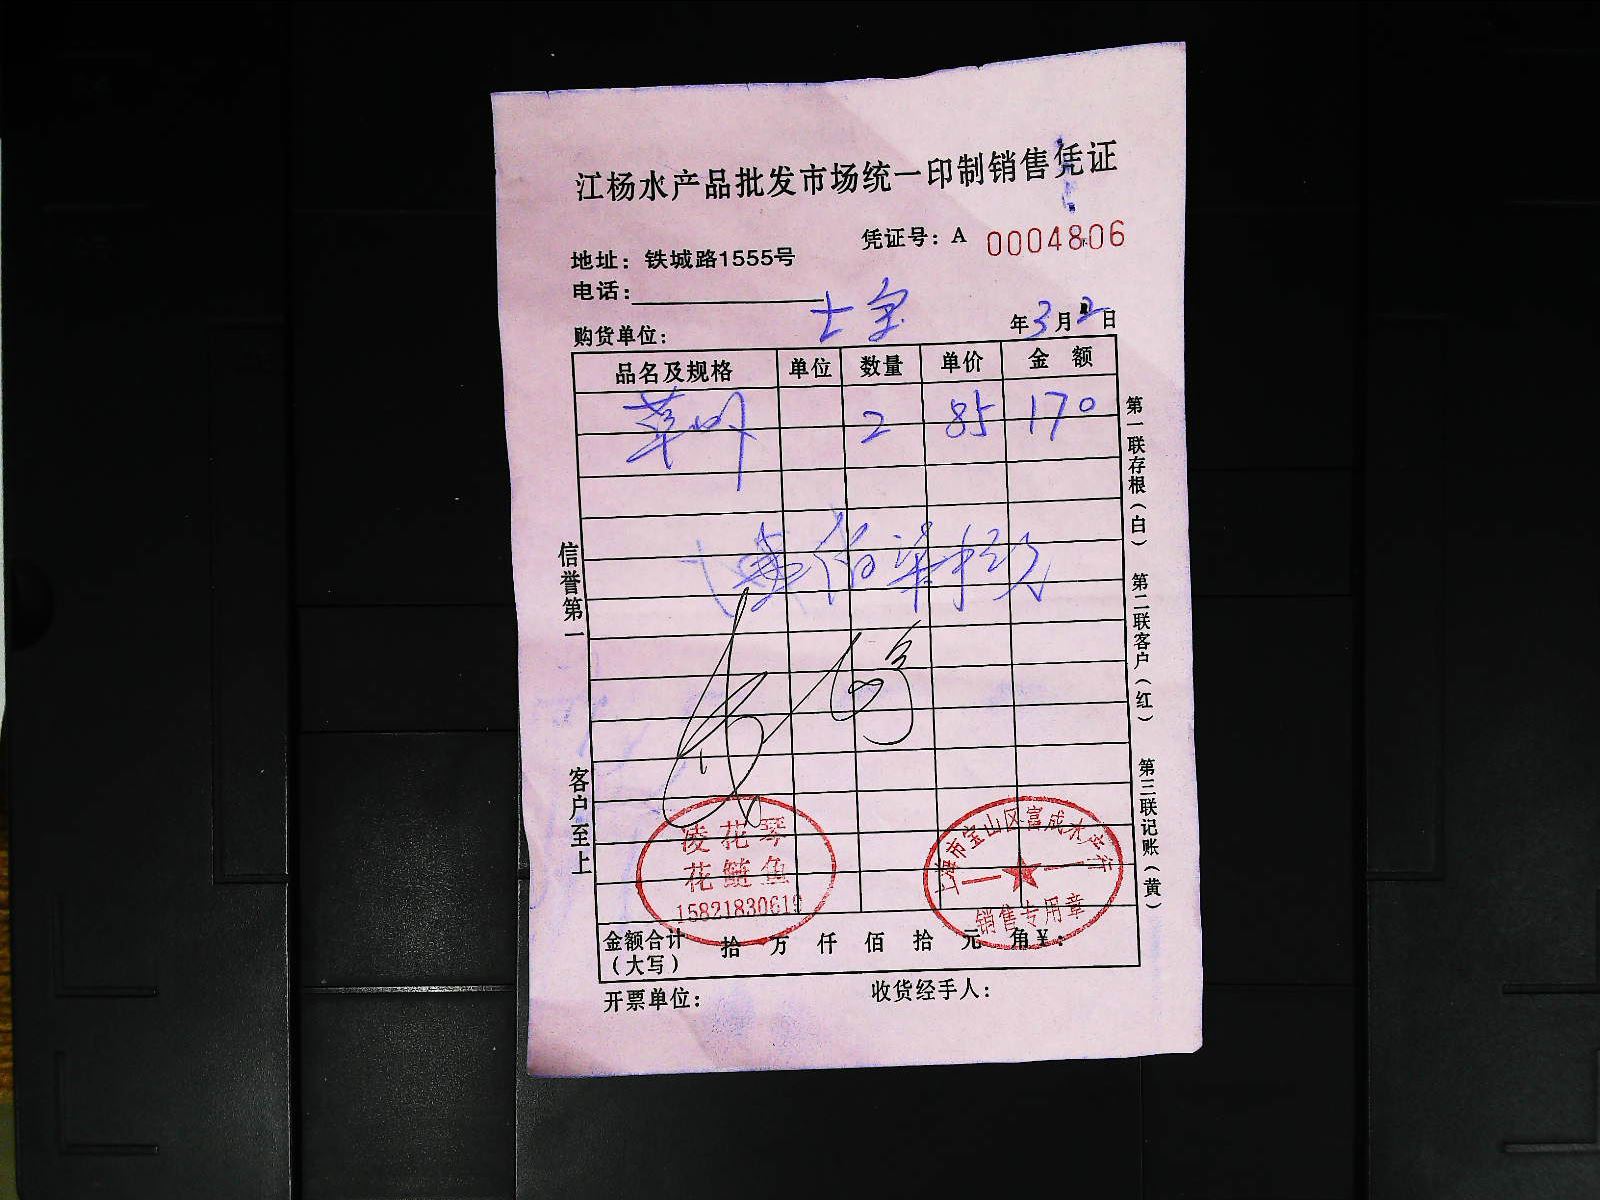 江杨水产品批发市场统一印制销售凭证
凭证号：A 0004806
地址：铁城路1555号
电话：
购货单位：
年3月2日
品名及规格 单位 数量 单价 金额
2 85 170
信誉第一
客户至上
第一联存根（白）
第二联客户（红）
第三联记账（黄）
凌花琴
花鲢鱼
15821830619
上海市宝山区富成水产行
销售专用章
金额合计（大写） 拾 万 仟 佰 拾 元 角¥：
开票单位： 收货经手人：